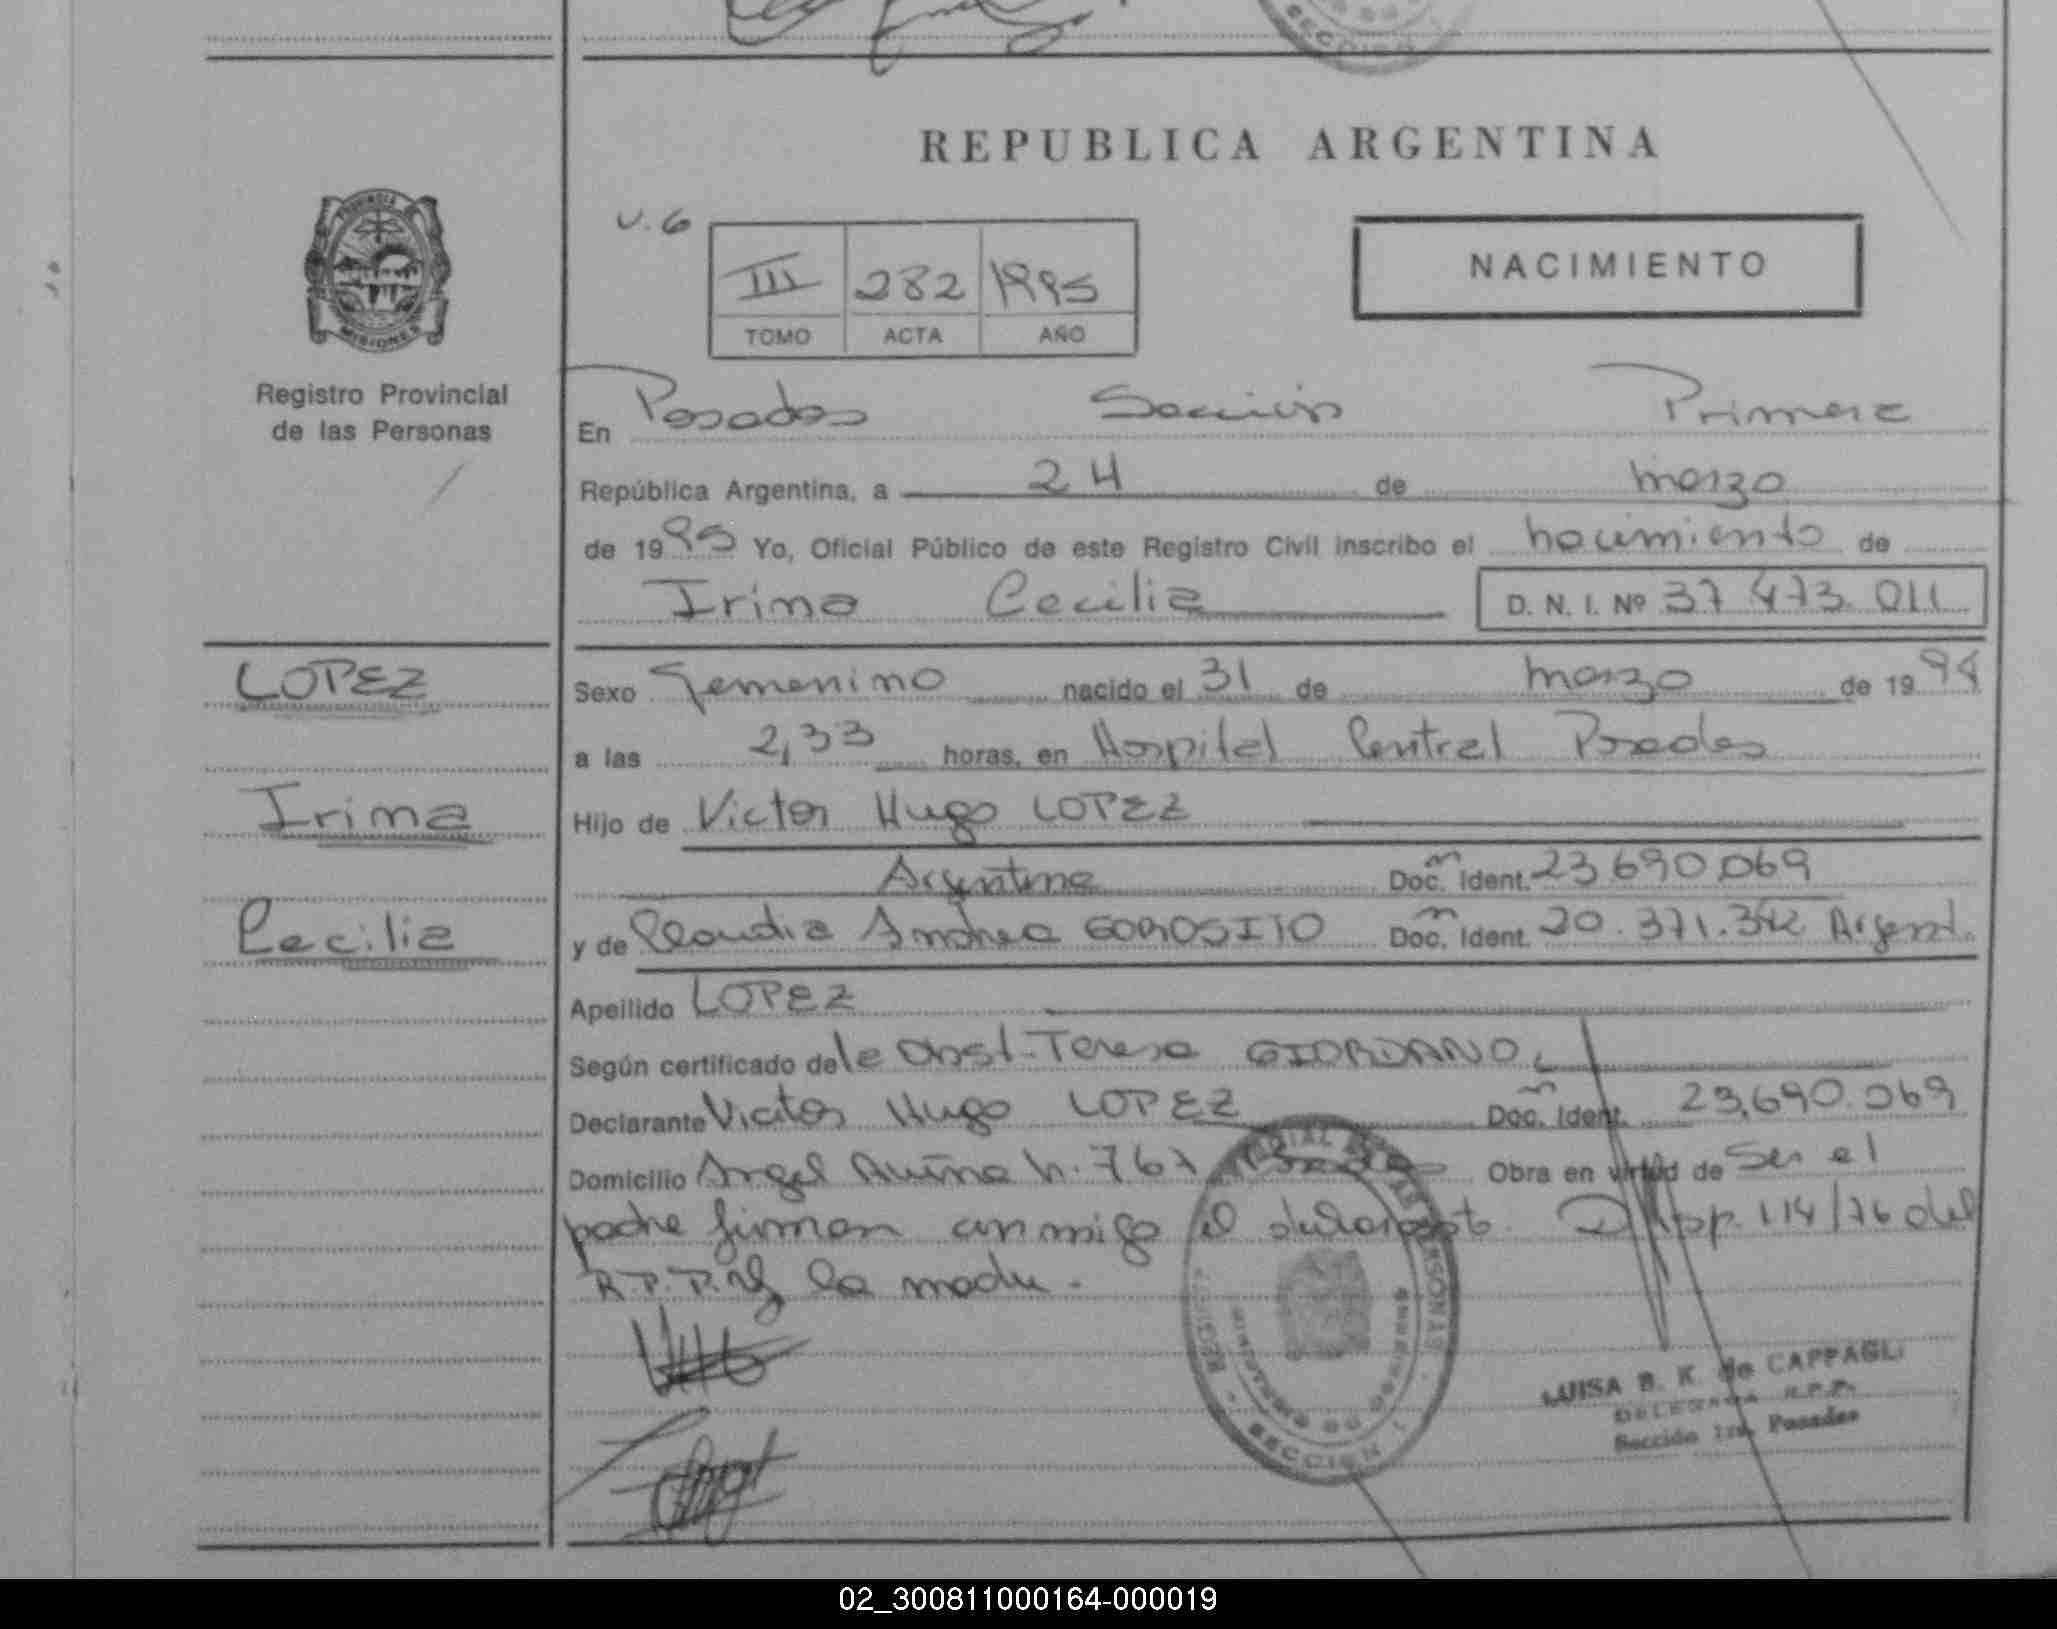 SECCION
REPUBLICA ARGENTINA
PROVINCIA DE
MISIONES
V. 6
III 282 1995
TOMO ACTA AÑO
NACIMIENTO
Registro Provincial
de las Personas
En Posadas Sección Primera
República Argentina, a 24 de marzo
de 1995 Yo, Oficial Público de este Registro Civil inscribo el nacimiento de
Irina Cecilia D. N. I. Nº 37 473 011
LOPEZ
Irina
Cecilia
Sexo Femenino nacido el 31 de marzo de 1994
a las 2,33 horas, en Hospital Central Posadas
Hijo de Victor Hugo LOPEZ
Argentina Doc. Ident. 23.690.069
y de Claudia Andrea GOROSITO Doc. Ident. 20.371.342 Argent.
Apellido LOPEZ
Según certificado de la Obst. Teresa GIORDANO
Declarante Victor Hugo LOPEZ Doc. Ident. 23.690.069
Domicilio Angel Acuña n. 767 Posadas Obra en virtud de Ser el
padre firman conmigo el declarante. Disp. 114/76 del
R.P.P. y la madre.
SECCION 1
LUISA B. K. de CAPPAGLI
DELEGADA R.P.P.
Sección 1ra. Posadas
02_300811000164-000019